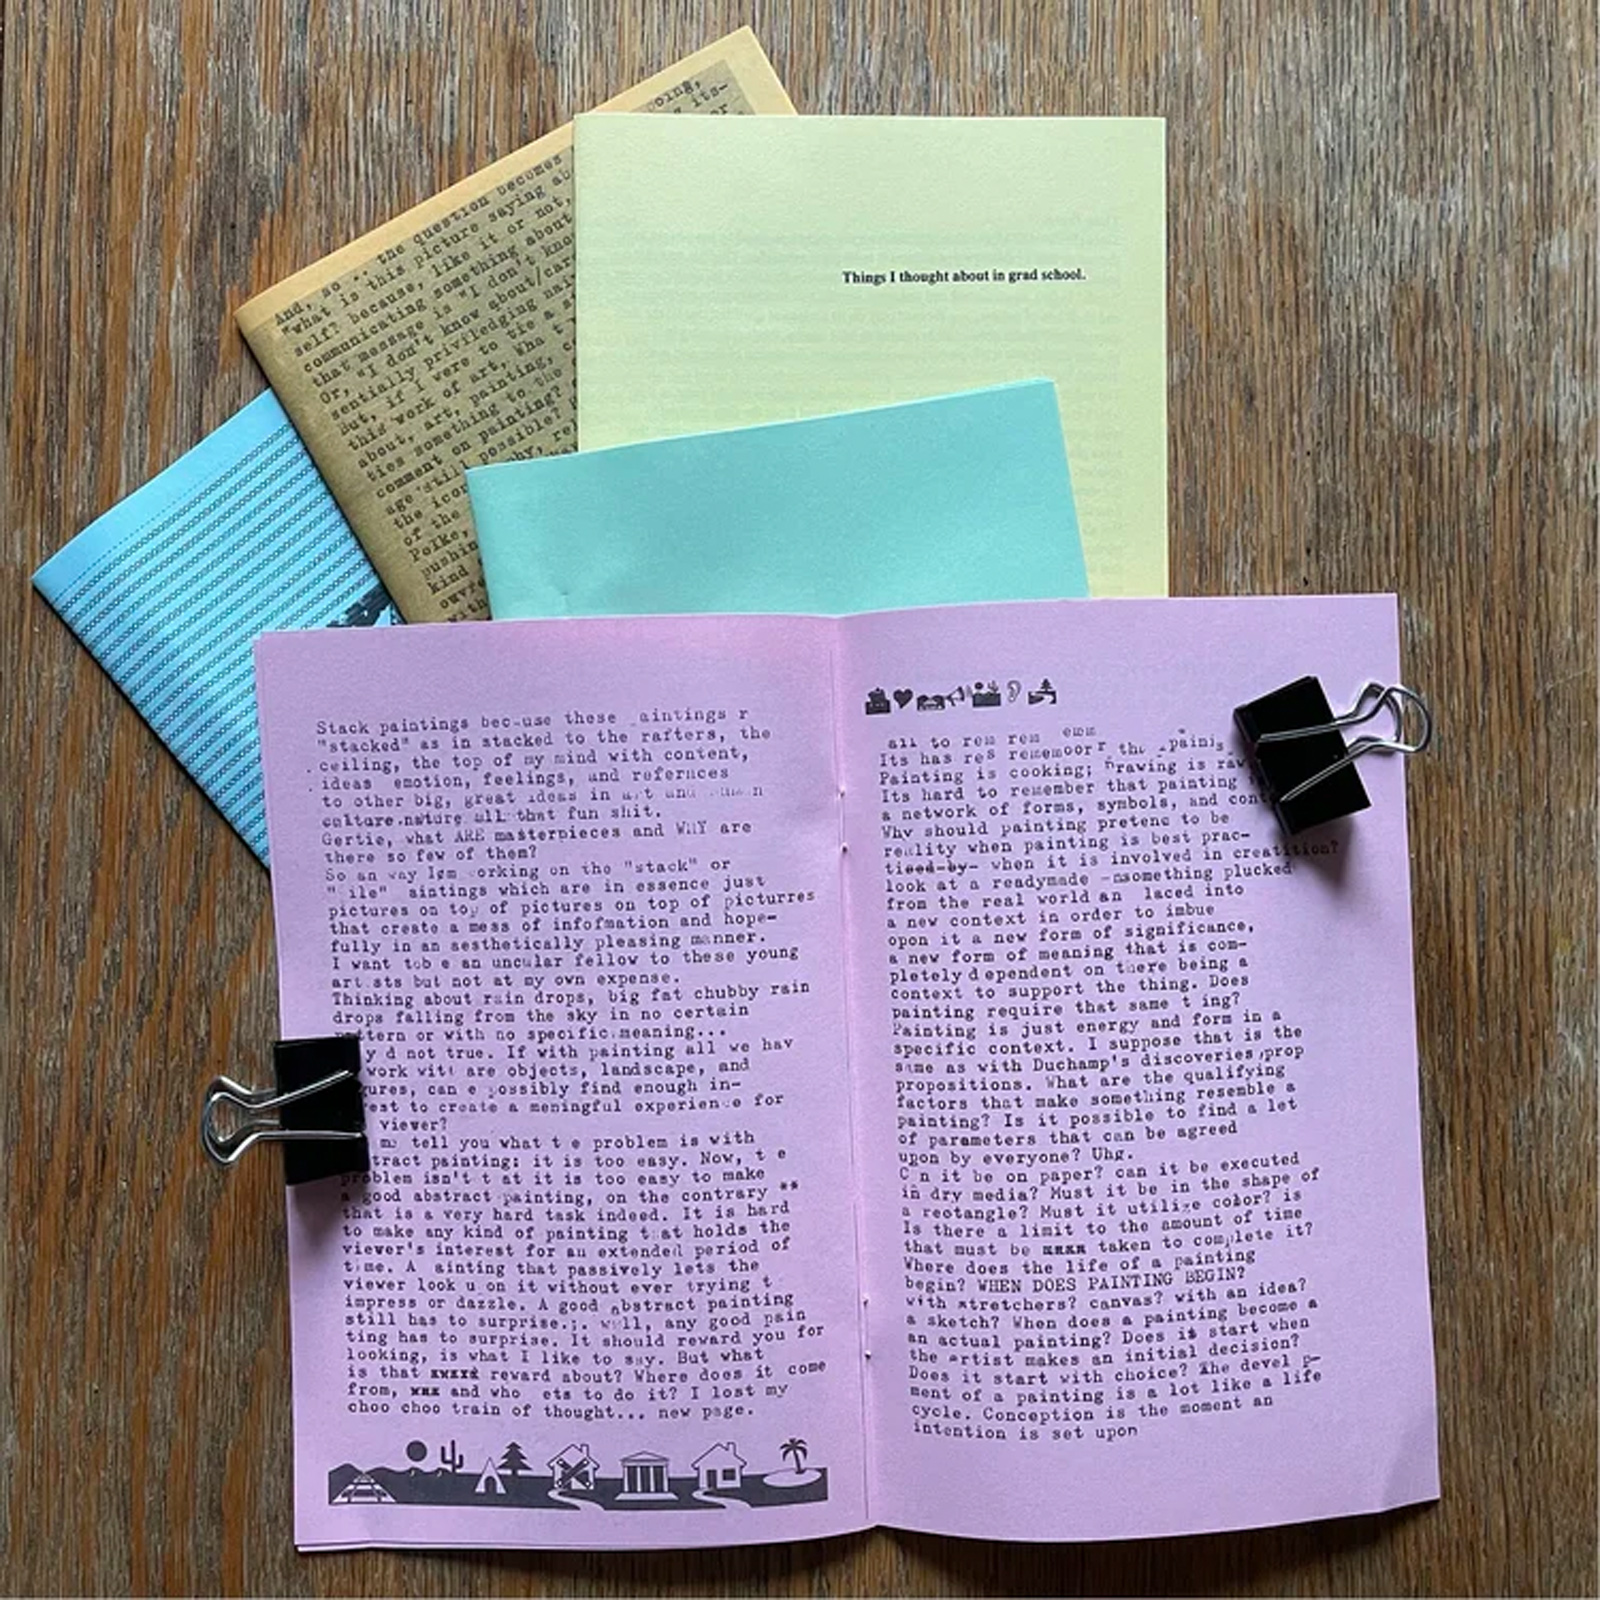 oing,
its-
or
And, so the question becomes
"what is this picture saying
self? because, like it or not,
communicating something about
that message is "I don't
Or, "I don't know about/
sentially priviledging
But, if I were to tie a
this work of art, Wha
about, art, painting,
ties something to the
comment on painting?
age still possible?
the
of the
Polke,
pushin
kind
Things I thought about in grad school.
Stack paintings bec use these aintings r
"stacked" as in stacked to the rafters, the
ceiling, the top of my mind with content,
ideas emotion, feelings, and refernces
to other big, great ideas in art and
culture.nature all that fun shit.
Gertie, what ARE masterpieces and WHY are
there so few of them?
So an way Iøm orking on the "stack" or
" ile" aintings which are in essence just
pictures on top of pictures on top of picturres
that create a mess of infofmation and hope-
fully in an aesthetically pleasing manner.
I want tob e an uncular fellow to these young
art sts but not at my own expense.
Thinking about rain drops, big fat chubby rain
drops falling from the sky in no certain
pattern or with no specific meaning...
y d not true. If with painting all we hav
work with are objects, landscape, and
gures, can e possibly find enough in-
rest to create a meningful experience for
viewer?
me tell you what t e problem is with
tract painting: it is too easy. Now, t e
problem isn't t at it is too easy to make
a good abstract painting, on the contrary **
that is a very hard task indeed. It is hard
to make any kind of painting that holds the
viewer's interest for an extended period of
time. A ainting that passively lets the
viewer look u on it without ever trying t
impress or dazzle. A good abstract painting
still has to surprise.;. well, any good pain
ting has to surprise. It should reward you for
looking, is what I like to say. But what
is that reward about? Where does it come
from, and who ets to do it? I lost my
choo choo train of thought... new page.
all to rem rem
Its has res rememoor r the painis
Painting is cooking; Drawing is raw
Its hard to remember that painting
a network of forms, symbols, and cont
Why should painting pretend to be
reality when painting is best prac-
ticed by when it is involved in creatition?
look at a readymade -nsomething plucked
from the real world an laced into
a new context in order to imbue
upon it a new form of significance,
a new form of meaning that is com-
pletely d ependent on there being a
context to support the thing. Does
painting require that same t ing?
Painting is just energy and form in a
specific context. I suppose that is the
same as with Duchamp's discoveries prop
propositions. What are the qualifying
factors that make something resemble a
painting? Is it possible to find a let
of parameters that can be agreed
upon by everyone? Uhg.
C n it be on paper? can it be executed
in dry media? Must it be in the shape of
a rectangle? Must it utilize color? is
Is there a limit to the amount of time
that must be taken to complete it?
Where does the life of a painting
begin? WHEN DOES PAINTING BEGIN?
with stretchers? canvas? with an idea?
a sketch? When does a painting become a
an actual painting? Does it start when
the artist makes an initial decision?
Does it start with choice? The devel p-
ment of a painting is a lot like a life
cycle. Conception is the moment an
intention is set upon